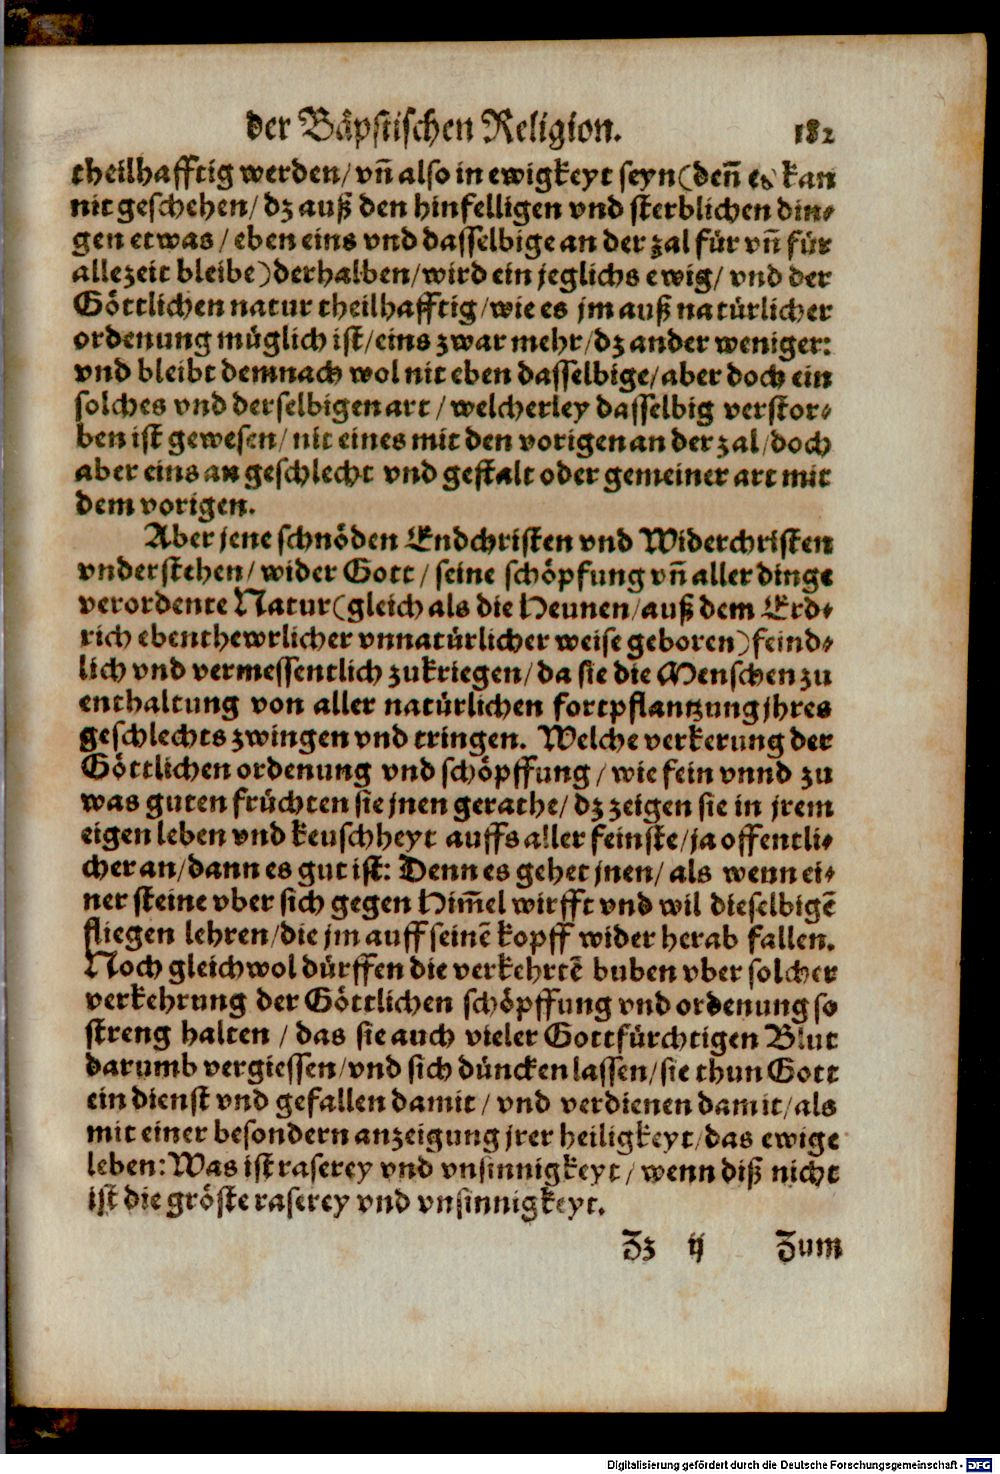 der Bäpstischen Religion. 182
theilhafftig werden/ vn̄ also in ewigkeyt seyn(den̄ es kan
nit geschehen/ dz auß den hinfelligen vnd sterblichen din-
gen etwas / eben eins vnd dasselbige an der zal für vn̄ für
allezeit bleibe) derhalben/ wird ein jeglichs ewig/ vnd der
Göttlichen natur theilhafftig/ wie es jm auß natürlicher
ordenung müglich ist/ eins zwar mehr/ dz ander weniger:
vnd bleibt demnach wol nit eben dasselbige/ aber doch ein
solches vnd derselbigen art / welcherley dasselbig verstor-
ben ist gewesen/ nit eines mit den vorigen an der zal/ doch
aber eins an geschlecht vnd gestalt oder gemeiner art mit
dem vorigen.
Aber jene schnöden Endchristen vnd Widerchristen
vnderstehen/ wider Gott / seine schöpfung vn̄ aller dinge
verordente Natur(gleich als die Heunen/ auß dem Erd-
rich ebenthewrlicher vnnatürlicher weise geboren) feind-
lich vnd vermessentlich zukriegen/ da sie die Menschen zu
enthaltung von aller natürlichen fortpflantzung jhres
geschlechts zwingen vnd tringen. Welche verkerung der
Göttlichen ordenung vnd schöpffung / wie fein vnnd zu
was guten früchten sie jnen gerathe/ dz zeigen sie in jrem
eigen leben vnd keuschheyt auffs aller feinste/ ja offentli-
cher an/ dann es gut ist: Denn es gehet jnen/ als wenn ei-
ner steine vber sich gegen Him̄el wirfft vnd wil dieselbigē
fliegen lehren/ die jm auff seinē kopff wider herab fallen.
Noch gleichwol dürffen die verkehrtē buben vber solcher
verkehrung der Göttlichen schöpffung vnd ordenung so
streng halten / das sie auch vieler Gottfürchtigen Blut
darumb vergiessen/ vnd sich düncken lassen/ sie thun Gott
ein dienst vnd gefallen damit / vnd verdienen damit/ als
mit einer besondern anzeigung jrer heiligkeyt/ das ewige
leben: Was ist raserey vnd vnsinnigkeyt / wenn diß nicht
ist die gröste raserey vnd vnsinnigkeyt.
Zz ij Zum
Digitalisierung gefördert durch die Deutsche Forschungsgemeinschaft - DFG